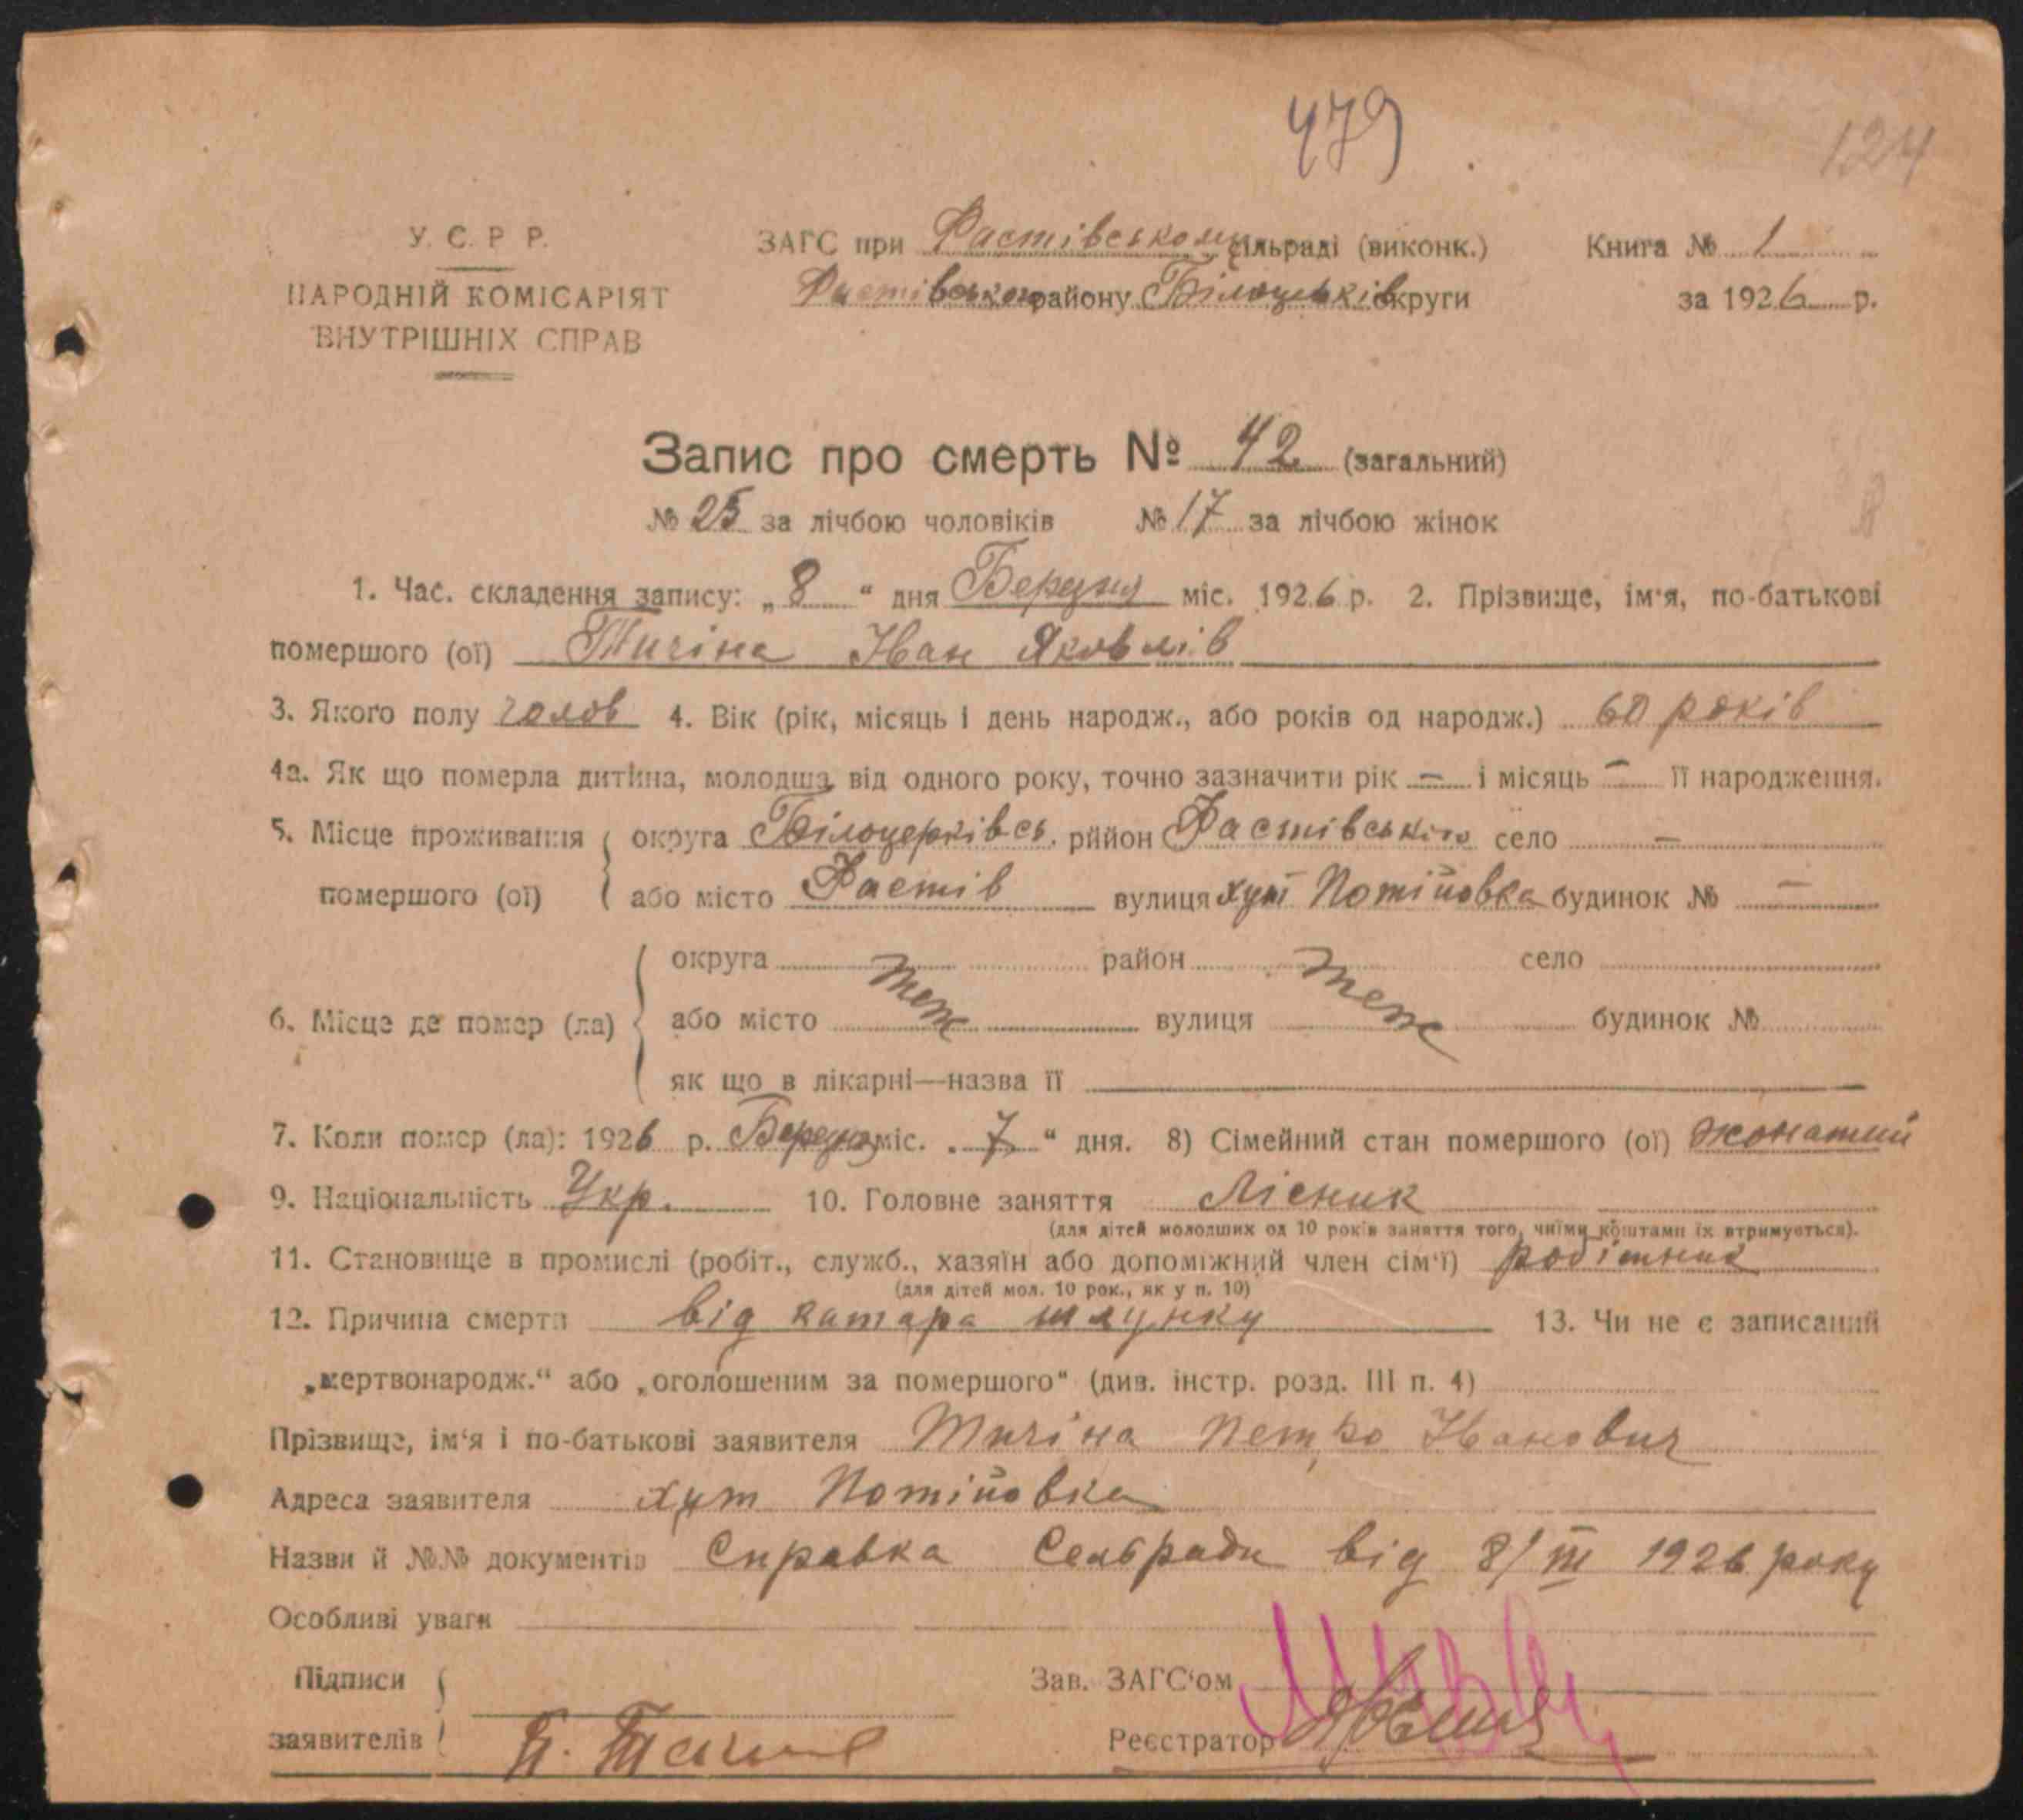 479
124
У. С. Р. Р.
НАРОДНІЙ КОМІСАРІЯТ
ВНУТРІШНІХ СПРАВ
ЗАГС при Фастівському сільраді (виконк.)
Фастівського району Білоцерків округи
Книга № 1
за 1926 р.
Запис про смерть № 42 (загальний)
№ 25 за лічбою чоловіків № 17 за лічбою жінок
1. Час. складення запису: „8" дня Березня міс. 1926 р. 2. Прізвище, ім'я, по-батькові
помершого (ої) Тичіна Іван Яковлів
3. Якого полу чолов 4. Вік (рік, місяць і день народж., або років од народж.) 60 років
4а. Як що померла дитина, молодша від одного року, точно зазначити рік — і місяць — її народження.
5. Місце проживання округа Білоцерківсь. район Фастівського село —
помершого (ої) або місто Фастів вулиця хут Потіївка будинок № —
округа теж район теж село
6. Місце де помер (ла) або місто вулиця будинок №
як що в лікарні—назва її
7. Коли помер (ла): 1926 р. Березня міс. „7" дня. 8) Сімейний стан помершого (ої) жонатий
9. Національність Укр. 10. Головне заняття Лісник
(для дітей молодших од 10 років заняття того, чиїми коштами їх втримується).
11. Становище в промислі (робіт., служб., хазяїн або допоміжний член сім'ї) робітник
(для дітей мол. 10 рок., як у п. 10)
12. Причина смерти від катара шлунку 13. Чи не є записаний
„мертвонародж." або „оголошеним за помершого" (див. інстр. розд. III п. 4)
Прізвище, ім'я і по-батькові заявителя Тичіна Петро Іванович
Адреса заявителя хут Потіївка
Назви й №№ документів Справка Сельради від 8/III 1926 року
Особливі уваги
Підписи
заявителів
П.
Зав. ЗАГС'ом
Реєстратор